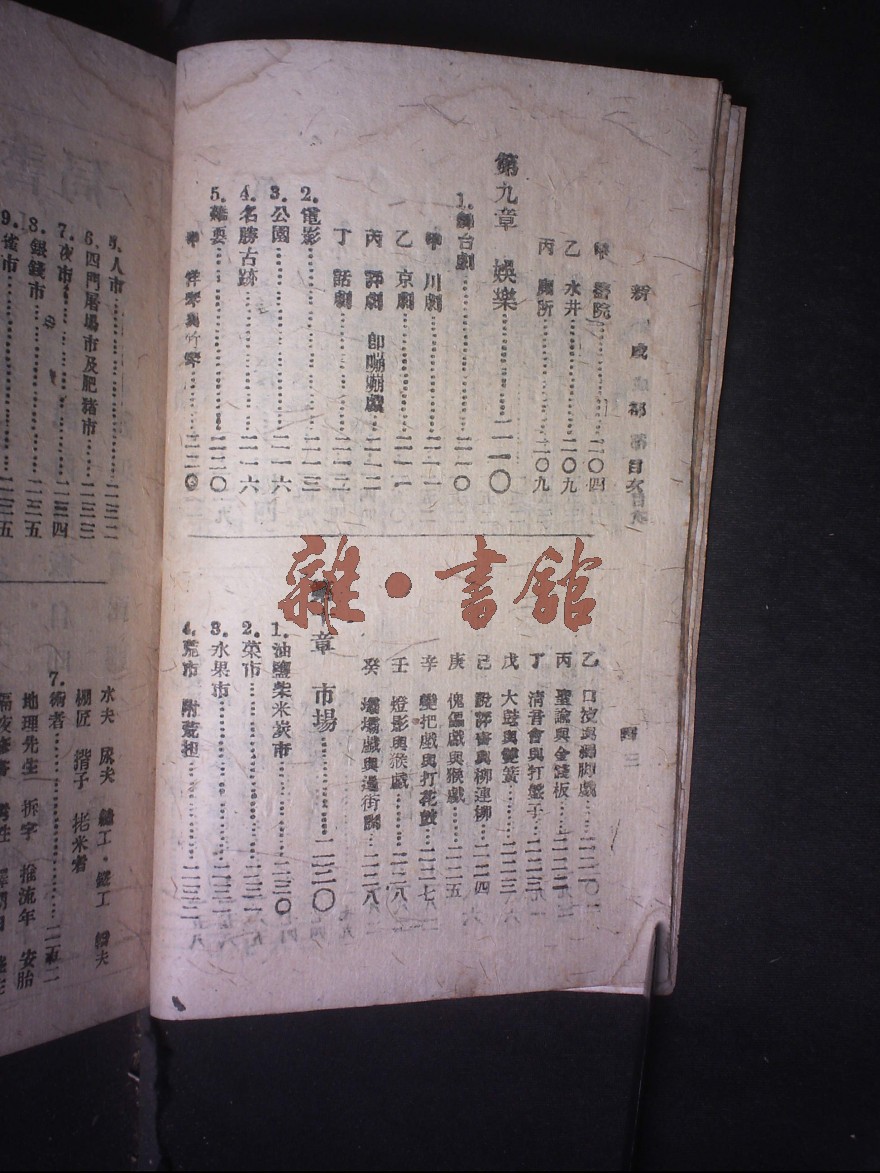 新 成 都 目次
四 三
甲 醫院……二〇四
乙 水井……二〇九
丙 廁所……二〇九
第九章 娛樂……二一〇
1.舞台劇……二一〇
甲 川劇……二一一
乙 京劇……二一一
丙 評劇 卽嘣嘣戲……二一二
丁 話劇……二一二
2.電影……二一三
3.公園……二一六
4.名勝古跡……二一六
5.雜耍……二二〇
甲 洋琴與竹琴……二二〇
乙 口技與……二二〇
丙 聖諭與金錢板……二二二
丁 清音會與打盤子……二二三
戊 大鼓與雙簧……二二三
己 說評書與柳連柳……二二四
庚 傀儡戲與猴戲……二二五
辛 變把戲與打花鼓……二二七
壬 燈影與猴戲……二二八
癸 壩壩戲與過街鬧……二二八
雜·書館
第十章 市場……二三〇
1.油鹽柴米炭市……二三〇
2.菜市……二三一
3.水果市……二三二
4.荒市 附荒担……二三二
5.人市……二三二
6.四門屠場市及肥豬市……二三三
7.夜市……二三四
8.銀錢市……二三五
9.雀市……二三五
水夫 尿夫 縫工 鐵工 轎夫
棚匠 揹子 㧯米者
7.術者……二五二
地理先生 拆字 推流年 安胎